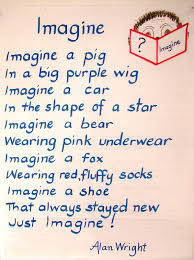 Imagine
?
Imagine
Imagine a pig
In a big purple wig
Imagine a car
In the shape of a star
Imagine a bear
Wearing pink underwear
Imagine a fox
Wearing red,fluffy socks
Imagine a shoe
That always stayed new
Just Imagine !
Alan Wright